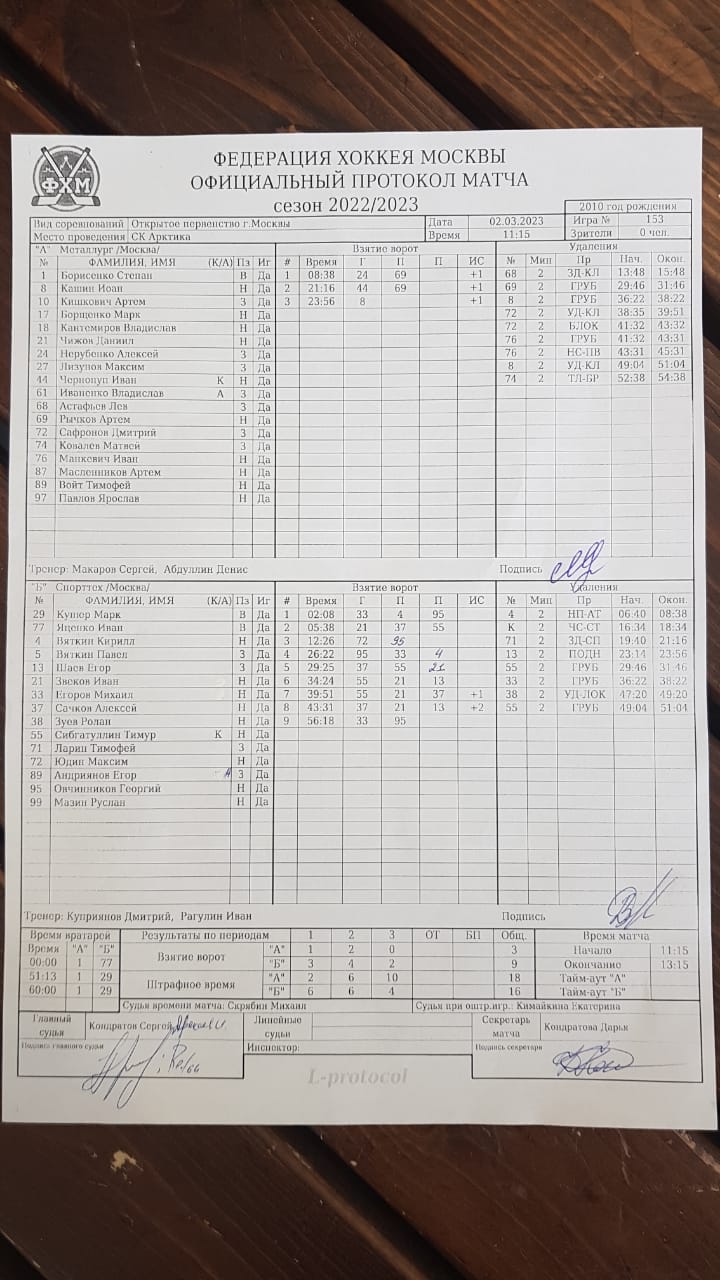 ФХМ
ФЕДЕРАЦИЯ ХОККЕЯ МОСКВЫ
ОФИЦИАЛЬНЫЙ ПРОТОКОЛ МАТЧА
сезон 2022/2023
2010 год рождения
Вид соревнований Открытое первенство г.Москвы Дата 02.03.2023 Игра № 153
Место проведения СК Арктика Время 11:15 Зрители 0 чел.
"А" Металлург /Москва/ Взятие ворот Удаления
№ ФАМИЛИЯ, ИМЯ (К/А) Пз Иг # Время Г П П ИС № Мин Пр Нач. Окон.
1 Борисенко Степан В Да 1 08:38 24 69 +1 68 2 ЗД-КЛ 13:48 15:48
8 Кашин Иоан Н Да 2 21:16 44 69 +1 69 2 ГРУБ 29:46 31:46
10 Кишкович Артем З Да 3 23:56 8 +1 8 2 ГРУБ 36:22 38:22
17 Борщенко Марк Н Да 72 2 УД-КЛ 38:35 39:51
18 Кантемиров Владислав Н Да 72 2 БЛОК 41:32 43:32
21 Чижов Даниил Н Да 76 2 ГРУБ 41:32 43:31
24 Нерубенко Алексей З Да 76 2 НС-ПВ 43:31 45:31
27 Лизунов Максим З Да 8 2 УД-КЛ 49:04 51:04
44 Чернопуп Иван К Н Да 74 2 ТЛ-БР 52:38 54:38
61 Иваненко Владислав А З Да
68 Астафьев Лев З Да
69 Рычков Артем Н Да
72 Сафронов Дмитрий З Да
74 Ковалев Матвей З Да
76 Манкевич Иван Н Да
87 Масленников Артем Н Да
89 Войт Тимофей Н Да
97 Павлов Ярослав Н Да
Тренер: Макаров Сергей, Абдуллин Денис Подпись
"Б" Спорттех /Москва/ Взятие ворот Удаления
№ ФАМИЛИЯ, ИМЯ (К/А) Пз Иг # Время Г П П ИС № Мин Пр Нач. Окон.
29 Кушер Марк В Да 1 02:08 33 4 95 4 2 НП-АТ 06:40 08:38
77 Яценко Иван В Да 2 05:38 21 37 55 К 2 ЧС-СТ 16:34 18:34
4 Вяткин Кирилл Н Да 3 12:26 72 95 71 2 ЗД-СП 19:40 21:16
5 Вяткин Павел З Да 4 26:22 95 33 4 13 2 ПОДН 23:14 23:56
13 Шаев Егор З Да 5 29:25 37 55 21 55 2 ГРУБ 29:46 31:46
21 Звеков Иван Н Да 6 34:24 55 21 13 33 2 ГРУБ 36:22 38:22
33 Егоров Михаил Н Да 7 39:51 55 21 37 +1 38 2 УД-ЛОК 47:20 49:20
37 Сачков Алексей Н Да 8 43:31 37 21 13 +2 55 2 ГРУБ 49:04 51:04
38 Зуев Ролан Н Да 9 56:18 33 95
55 Сибгатуллин Тимур К Н Да
71 Ларин Тимофей З Да
72 Юдин Максим Н Да
89 Андриянов Егор А З Да
95 Овчинников Георгий Н Да
99 Мазин Руслан Н Да
Тренер: Куприянов Дмитрий, Рагулин Иван Подпись
Время вратарей Результаты по периодам 1 2 3 ОТ БП Общ. Время матча
Время "А" "Б" Взятие ворот "А" 1 2 0 3 Начало 11:15
00:00 1 77 "Б" 3 4 2 9 Окончание 13:15
51:13 1 29 Штрафное время "А" 2 6 10 18 Тайм-аут "А"
60:00 1 29 "Б" 6 6 4 16 Тайм-аут "Б"
Судья времени матча: Скрябин Михаил Судья при оштр.игр.: Кимайкина Екатерина
Главный судья Кондратов Сергей Линейные судьи Секретарь матча Кондратова Дарья
Подпись главного судьи Инспектор: Подпись секретаря
L-protocol